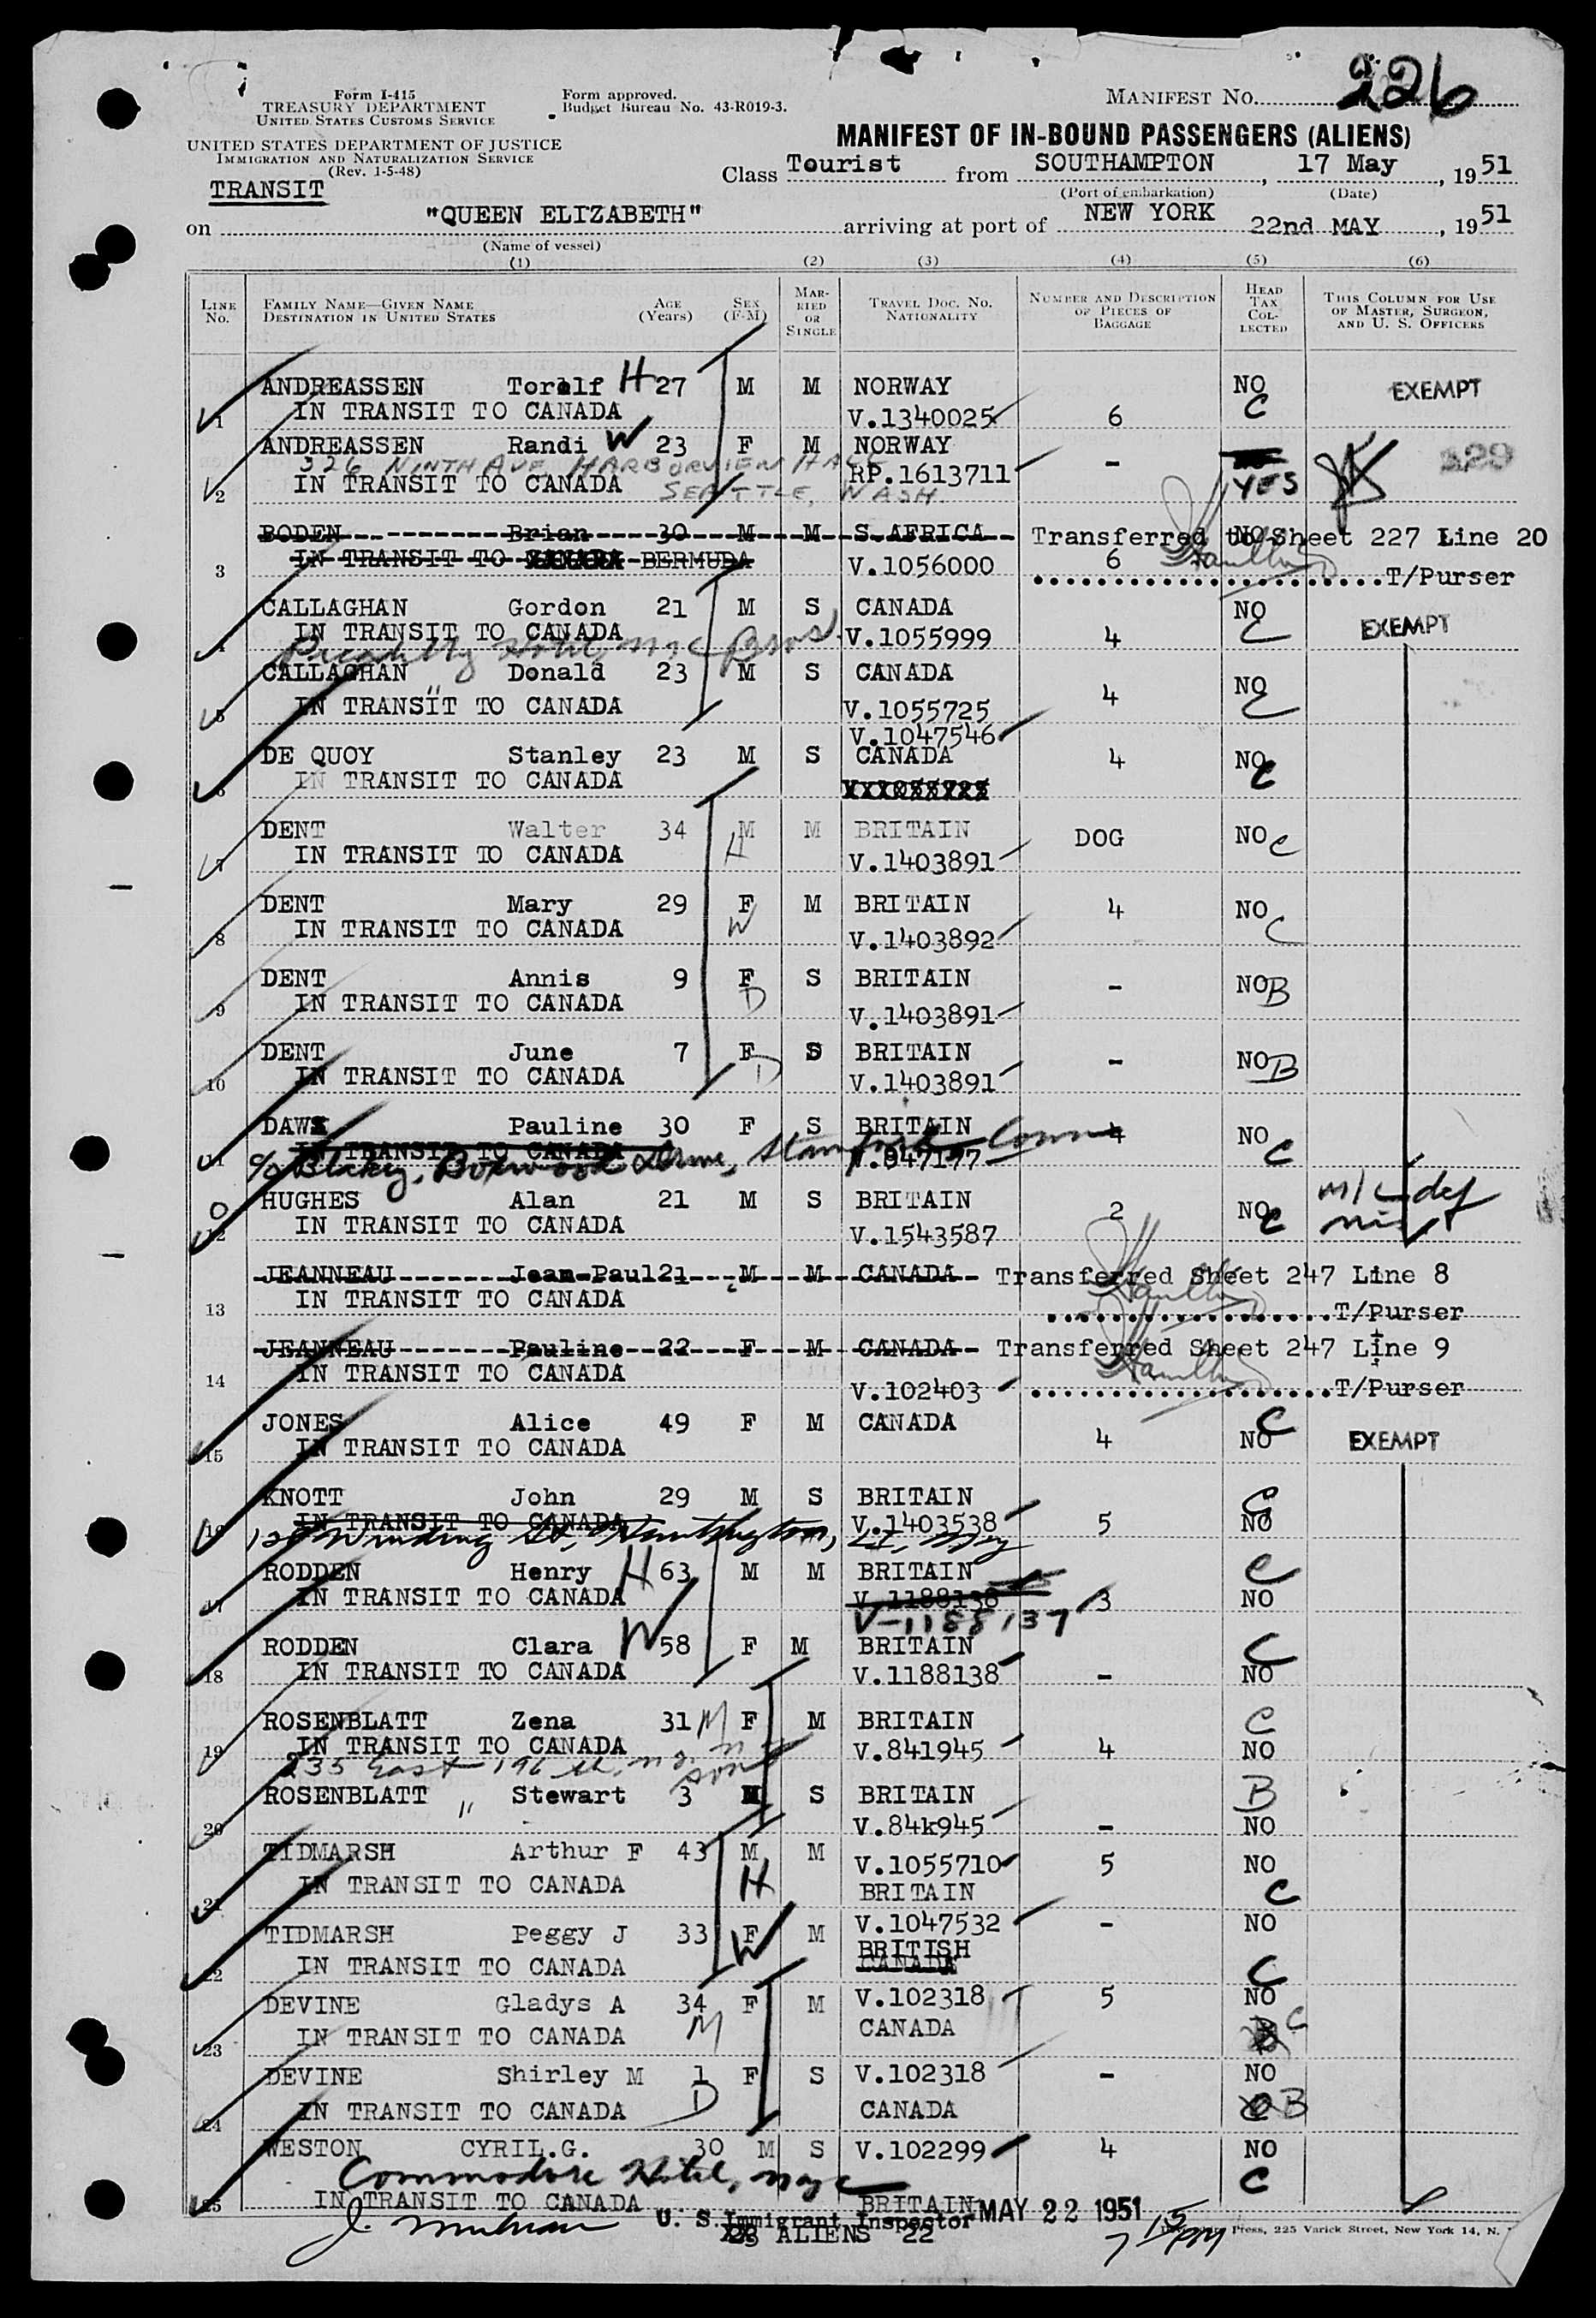 Form I-415
TREASURY DEPARTMENT
UNITED STATES CUSTOMS SERVICE
Form approved.
Budget Bureau No. 43-R019-3.
MANIFEST NO. 226
UNITED STATES DEPARTMENT OF JUSTICE
IMMIGRATION AND NATURALIZATION SERVICE
(Rev. 1-5-48)
TRANSIT
MANIFEST OF IN-BOUND PASSENGERS (ALIENS)
Class Tourist from SOUTHAMPTON, 17 May, 1951
(Port of embarkation) (Date)
on "QUEEN ELIZABETH" arriving at port of NEW YORK 22nd MAY, 1951
(Name of vessel)
(1) (2) (3) (4) (5) (6)
LINE NO. FAMILY NAME—GIVEN NAME DESTINATION IN UNITED STATES AGE (Years) SEX (F-M) MARRIED OR SINGLE TRAVEL DOC. NO. NATIONALITY NUMBER AND DESCRIPTION OF PIECES OF BAGGAGE HEAD TAX COLLECTED THIS COLUMN FOR USE OF MASTER, SURGEON, AND U. S. OFFICERS
ANDREASSEN Torolf H 27 M M NORWAY NO EXEMPT
1 IN TRANSIT TO CANADA V.1340025 6 C
ANDREASSEN Randi W 23 F M NORWAY 229
326 NINTH AVE HARBORVIEW HALL
2 IN TRANSIT TO CANADA RP.1613711 - YES
SEATTLE, WASH
BODEN Brian 30 M M S.AFRICA Transferred to Sheet 227 Line 20 NO
IN TRANSIT TO CANADA BERMUDA
3 V.1056000 6 Hamilton T/Purser
CALLAGHAN Gordon 21 M S CANADA NO
4 IN TRANSIT TO CANADA V.1055999 4 C EXEMPT
Piccadilly Hotel, NYC Bros
CALLAGHAN Donald 23 M S CANADA NO
"
5 IN TRANSIT TO CANADA V.1055725 4 C
V.1047546
DE QUOY Stanley 23 M S CANADA 4 NO
6 IN TRANSIT TO CANADA V.1055725 C
DENT Walter 34 M M BRITAIN DOG NO C
7 IN TRANSIT TO CANADA H V.1403891
DENT Mary 29 F M BRITAIN 4 NO
8 IN TRANSIT TO CANADA W V.1403892 C
DENT Annis 9 F S BRITAIN - NO B
9 IN TRANSIT TO CANADA D V.1403891
DENT June 7 F S BRITAIN - NO B
10 IN TRANSIT TO CANADA D V.1403891
DAWS Pauline 30 F S BRITAIN 4 NO
11 IN TRANSIT TO CANADA V.847177 C
c/o Blakey, Boxwood Drive, Stamford Conn
HUGHES Alan 21 M S BRITAIN 2 NO
12 IN TRANSIT TO CANADA V.1543587 C
JEANNEAU Jean-Paul 21 M M CANADA Transferred Sheet 247 Line 8
13 IN TRANSIT TO CANADA Hamilton T/Purser
JEANNEAU Pauline 22 F M CANADA Transferred Sheet 247 Line 9
14 IN TRANSIT TO CANADA Hamilton T/Purser
V.102403
JONES Alice 49 F M CANADA C
15 IN TRANSIT TO CANADA 4 NO EXEMPT
KNOTT John 29 M S BRITAIN C
16 IN TRANSIT TO CANADA V.1403538 5 NO
Winding St, Huntington,
RODDEN Henry H 63 M M BRITAIN C
17 IN TRANSIT TO CANADA V.1188138 3 NO
V-1188137
RODDEN Clara W 58 F M BRITAIN C
18 IN TRANSIT TO CANADA V.1188138 - NO
ROSENBLATT Zena 31 M F M BRITAIN C
19 IN TRANSIT TO CANADA V.841945 4 NO
235 East 196 th, N.Y. son
ROSENBLATT " Stewart 3 M S BRITAIN B
20 V.84k945 - NO
TIDMARSH Arthur F 43 M M V.1055710 5 NO
21 IN TRANSIT TO CANADA H BRITAIN C
TIDMARSH Peggy J 33 F M V.1047532 - NO
W BRITISH
22 IN TRANSIT TO CANADA CANADA C
DEVINE Gladys A 34 F M V.102318 5 NO
23 IN TRANSIT TO CANADA M CANADA C
DEVINE Shirley M 1 F S V.102318 - NO
24 IN TRANSIT TO CANADA D CANADA B
WESTON CYRIL.G. 30 M S V.102299 4 NO
Commodore Hotel, NYC C
25 IN TRANSIT TO CANADA BRITAIN
U. S. Immigrant Inspector MAY 22 1951
ALIENS 22
7 15 PM
Press, 225 Varick Street, New York 14, N.